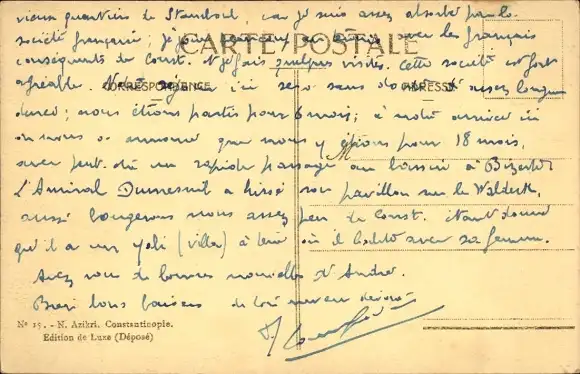 vieux quartiers de Stamboul, car je suis assez absorbé par la
société française; je joue au avec les français
CARTE POSTALE
conséquents de Const. et je fais quelques visites. Cette société est fort
agréable. Notre séjour ici sera sans doute d'assez longue
CORRESPONDANCE
ADRESSE
durée; nous étions partis pour 6 mois; à notre arrivée ici
on nous a annoncé que nous y étions pour 18 mois,
M
avec peut-être un rapide passage au bassin à Bizerte.
L'Amiral Dumesnil a hissé son pavillon sur le Waldeck,
aussi bougerons nous assez peu de Const. étant donné
qu'il a un Yali (villa) à terre où il habite avec sa femme.
Avez vous de bonnes nouvelles d'André.
Bons baisers de votre neveu dévoué
Nº 15. - N. Azikri. Constantinople.
Edition de Luxe (Déposé)